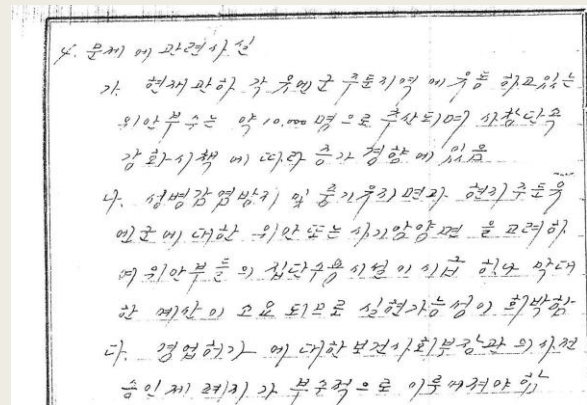 4. 문제에 관련사실
가. 현재관하 각 유엔군 주둔지역에 유동하고있는
위안부수는 약 10,000명으로 추산되며 사창단속
강화시책에 따라 증가 경향에 있음
나. 성병감염방지 및 풍기유지면과 현지주둔유
엔군에 대한 위안 또는 사기앙양면을 고려하
여 위안부들의 집단수용시설이 시급하나 막대
한 예산이 소요되므로 실현가능성이 희박함
다. 영업허가에 대한 보건사회부장관의 사전
승인제 폐지가 부수적으로 이루어져야함